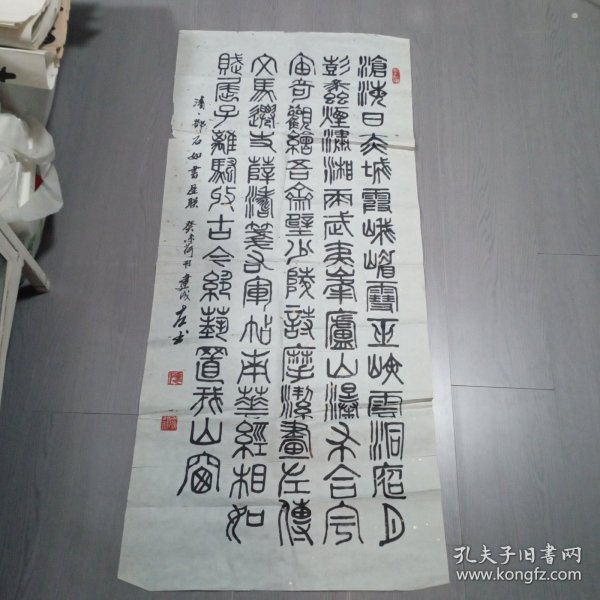 滄海日赤城霞峨嵋雪巫峽雲洞庭月
彭蠡煙瀟湘雨武夷峯廬山瀑布合宇
宙奇觀繪吾齋壁少陵詩摩潔畫左傳
文馬遷史薛濤箋右軍帖南華經相如
賦屈子離騷收古今絕藝置我山窗
清·鄧石如書屋聯 癸未 建成左书
孔夫子旧书网
www.kongfz.com